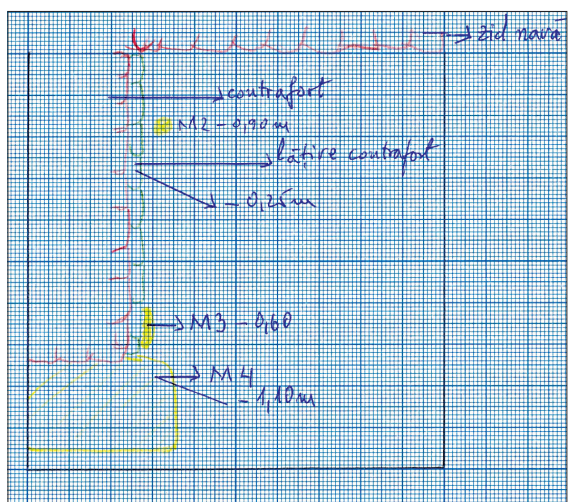 zid navă
contrafort
M2 - 0,90 m
lățire contrafort
- 0,25 m
M3 - 0,60
M4
- 1,10 m